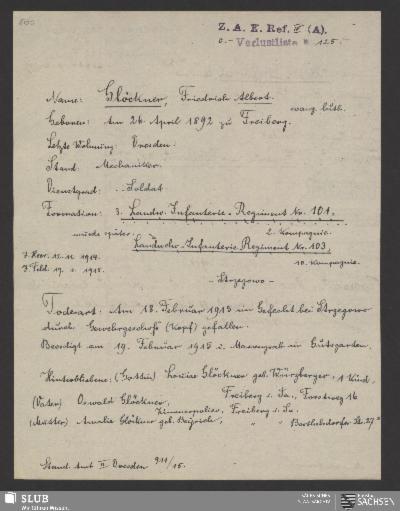 Z. A. E. Ref. IV (A).
Verlustliste 125.
Name: Glöckner, Friedrich Albert.
evang. luth.
Geboren: Am 26. April 1892 zu Freiberg.
Letzte Wohnung: Dresden.
Stand: Mechaniker.
Dienstgrad: Soldat
Formation: 3. Landw. Infanterie-Regiment Nr. 101.
wurde später 2. Kompagnie.
Landwehr-Infanterie Regiment Nr. 103.
10. Kompagnie.
z. Heer: 12. 11. 1914.
z. Feld: 19. 1. 1915.
-Strzegowo-
Todesart: Am 18. Februar 1915 im Gefecht bei Strzegowo
durch Gewehrgeschoß (Kopf) gefallen.
Beerdigt am 19. Februar 1915 i. Massengrab im Gutsgarten.
Hinterbliebene: (Gattin) Louise Glöckner geb. Würzberger, 1 Kind,
Freiberg i. Sa., 16
(Vater) Oswald Glöckner,
Zimmerpolier, Freiberg i. Sa.
(Mutter) Amalie Glöckner geb. " " Berthelsdorfer St. 27
Stand. Amt II Dresden 911/15.
SLUB
Wir führen Wissen.
SACHSEN